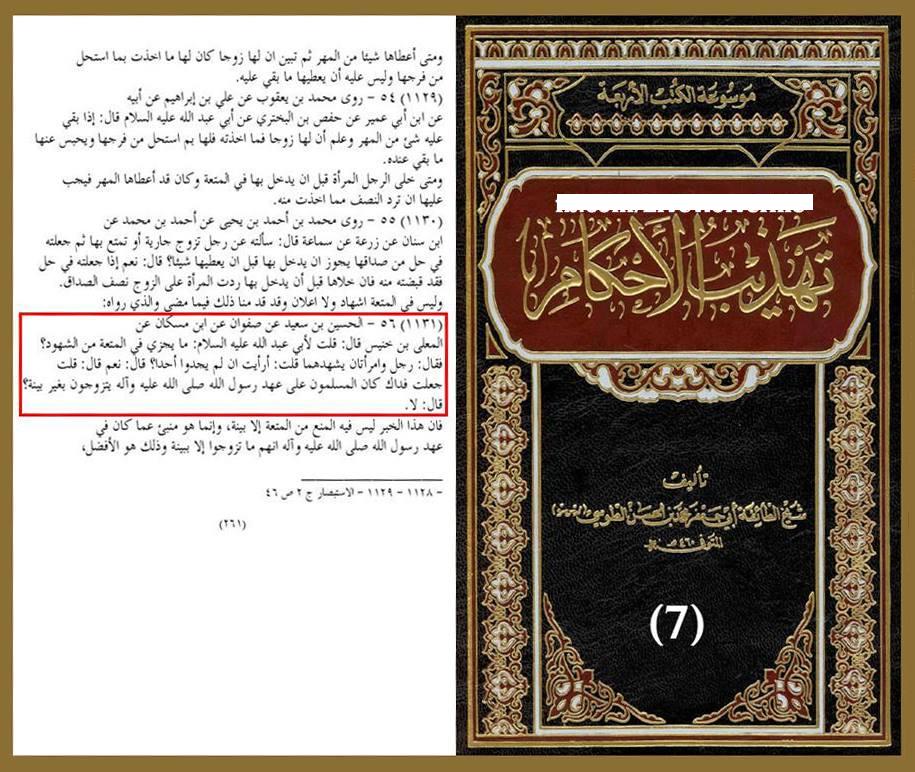 ومتى أعطاها شيئا من المهر ثم تبين ان لها زوجا كان لها ما اخذت بما استحل
من فرجها وليس عليه أن يعطيها ما بقي عليه.
(١١٢٩) ٥٤ - روى محمد بن يعقوب عن علي بن إبراهيم عن أبيه
عن ابن أبي عمير عن حفص بن البختري عن أبي عبد الله عليه السلام قال: إذا بقي
عليه شئ من المهر وعلم أن لها زوجا فما اخذته فلها بم استحل من فرجها ويحبس عنها
ما بقي عنده.
ومتى خلى الرجل المرأة قبل ان يدخل بها في المتعة وكان قد أعطاها المهر فيجب
عليها ان ترد النصف مما اخذت منه.
(١١٣٠) ٥٥ - روى محمد بن أحمد بن يحيى عن أحمد بن محمد عن
ابن سنان عن زرعة عن سماعة قال: سألته عن رجل تزوج جارية أو تمتع بها ثم جعلته
في حل من صداقها يجوز ان يدخل بها قبل ان يعطيها شيئا؟ قال: نعم إذا جعلته في حل
فقد قبضته منه فان خلاها قبل أن يدخل بها ردت المرأة على الزوج نصف الصداق.
وليس في المتعة اشهاد ولا اعلان وقد قد منا ذلك فيما مضى والذي رواه:
(١١٣١) ٥٦ - الحسين بن سعيد عن صفوان عن ابن مسكان عن
المعلى بن خنيس قال: قلت لأبي عبد الله عليه السلام: ما يجزي في المتعة من الشهود؟
فقال: رجل وامرأتان يشهدهما قلت: أرأيت ان لم يجدوا أحدا؟ قال: نعم قال: قلت
جعلت فداك كان المسلمون على عهد رسول الله صلى الله عليه وآله يتزوجون بغير بينة؟
قال: لا.
فان هذا الخبر ليس فيه المنع من المتعة إلا ببينة، وإنما هو منبئ عما كان في
عهد رسول الله صلى الله عليه وآله انهم ما تزوجوا إلا ببينة وذلك هو الأفضل،
- ١١٢٨ - ١١٢٩ - الاستبصار ج ٢ ص ٤٦
(٢٦١)
موسوعة الكتب الأربعة
تهذيب الأحكام
تأليف
شيخ الطائفة أبي جعفر محمد بن الحسن الطوسي
المتوفى ٤٦٠ هـ
(7)